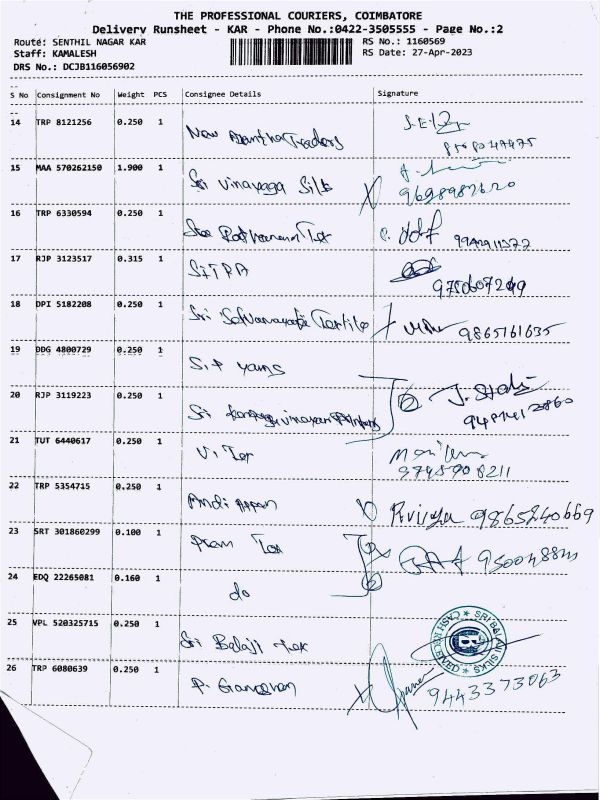 THE PROFESSIONAL COURIERS, COIMBATORE
Delivery Runsheet - KAR - Phone No.:0422-3505555 - Page No.:2
Route: SENTHIL NAGAR KAR RS No.: 1160569
Staff: KAMALESH RS Date: 27-Apr-2023
DRS No.: DCJB116056902
S No Consignment No Weight PCS Consignee Details Signature
14 TRP 8121256 0.250 1 New Traders
15 MAA 570262150 1.900 1 Sri Vinayaga Silk
16 TRP 6330594 0.250 1 Tex
17 RJP 3123517 0.315 1 SITRA
18 DPI 5182208 0.250 1 Sri Textile 9865161635
19 DDG 4800729 0.250 1 S.P yarns
20 RJP 3119223 0.250 1 Sri
21 TUT 6440617 0.250 1 V. Tex 9745908211
22 TRP 5354715 0.250 1 Andi Appan 9865240669
23 SRT 301860299 0.100 1 Prem Tex
24 EDQ 22265081 0.160 1 do
25 VPL 520325715 0.250 1 Sri Balaji Tex SRI BALAJI SILKS
26 TRP 6080639 0.250 1 P. 9443373063